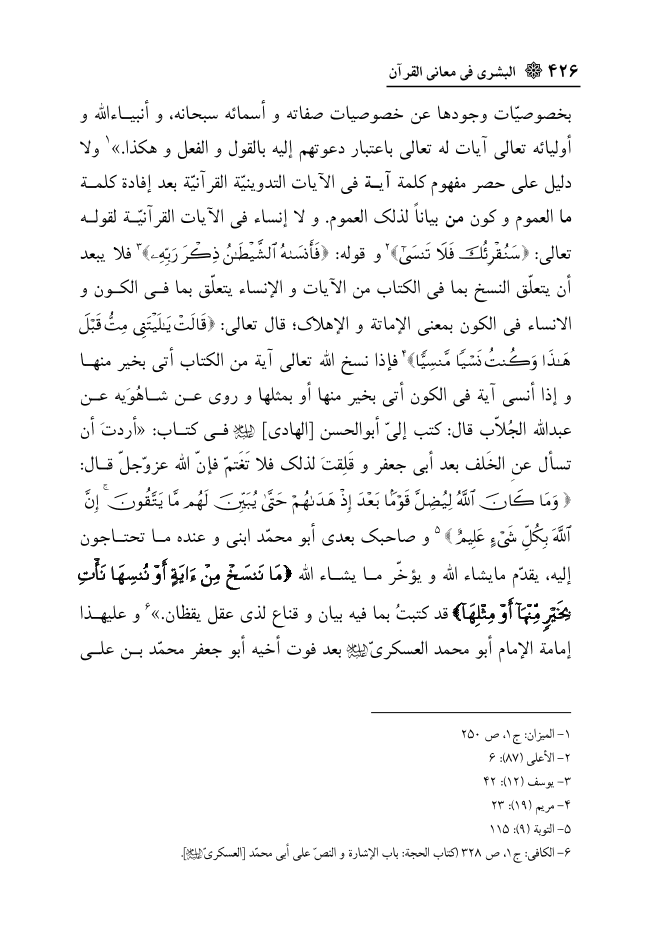 ۴۲۶ البشری فی معانی القرآن
بخصوصیّات وجودها عن خصوصیات صفاته و أسمائه سبحانه، و أنبیاءالله و
أولیائه تعالی آیات له تعالی باعتبار دعوتهم إلیه بالقول و الفعل و هکذا.»۱ ولا
دلیل علی حصر مفهوم کلمة آیة فی الآیات التدوینیّة القرآنیّة بعد إفادة کلمة
ما العموم و کون من بیاناً لذلک العموم. و لا إنساء فی الآیات القرآنیّة لقوله
تعالی: ﴿سَنُقْرِئُكَ فَلَا تَنسَىٰٓ﴾۲ و قوله: ﴿فَأَنسَىٰهُ ٱلشَّيْطَـٰنُ ذِكْرَ رَبِّهِۦ﴾۳ فلا یبعد
أن یتعلّق النسخ بما فی الکتاب من الآیات و الإنساء یتعلّق بما فی الکون و
الانساء فی الکون بمعنی الإماتة و الإهلاک؛ قال تعالی: ﴿قَالَتْ يَـٰلَيْتَنِى مِتُّ قَبْلَ
هَـٰذَا وَكُنتُ نَسْيًا مَّنسِيًّا﴾۴ فإذا نسخ الله تعالی آیة من الکتاب أتی بخیر منها
و إذا أنسی آیة فی الکون أتی بخیر منها أو بمثلها و روی عن شاهُوَیه عن
عبدالله الجُلاّب قال: کتب إلیّ أبوالحسن [الهادی] علیه‌السلام فی کتاب: «أردتَ أن
تسأل عن الخَلف بعد أبی جعفر و قَلِقتَ لذلک فلا تَغتمّ فإنّ الله عزوجلّ قال:
﴿وَمَا كَانَ ٱللَّهُ لِيُضِلَّ قَوْمًۢا بَعْدَ إِذْ هَدَىٰهُمْ حَتَّىٰ يُبَيِّنَ لَهُم مَّا يَتَّقُونَ ۚ إِنَّ
ٱللَّهَ بِكُلِّ شَىْءٍ عَلِيمٌ﴾۵ و صاحبک بعدی أبو محمّد ابنی و عنده ما تحتاجون
إلیه، یقدّم مایشاء الله و یؤخّر ما یشاء الله ﴿مَا نَنسَخْ مِنْ ءَايَةٍ أَوْ نُنسِهَا نَأْتِ
بِخَيْرٍ مِّنْهَآ أَوْ مِثْلِهَآ﴾ قد کتبتُ بما فیه بیان و قناع لذی عقل یقظان.»۶ و علیهذا
إمامة الإمام أبو محمد العسکریّ علیه‌السلام بعد فوت أخیه أبو جعفر محمّد بن علی
۱- المیزان: ج۱، ص ۲۵۰
۲- الأعلی (۸۷): ۶
۳- یوسف (۱۲): ۴۲
۴- مریم (۱۹): ۲۳
۵- التوبة (۹): ۱۱۵
۶- الکافی: ج۱، ص ۳۲۸ (کتاب الحجة: باب الإشارة و النصّ علی أبی محمّد [العسکریّ علیه‌السلام].